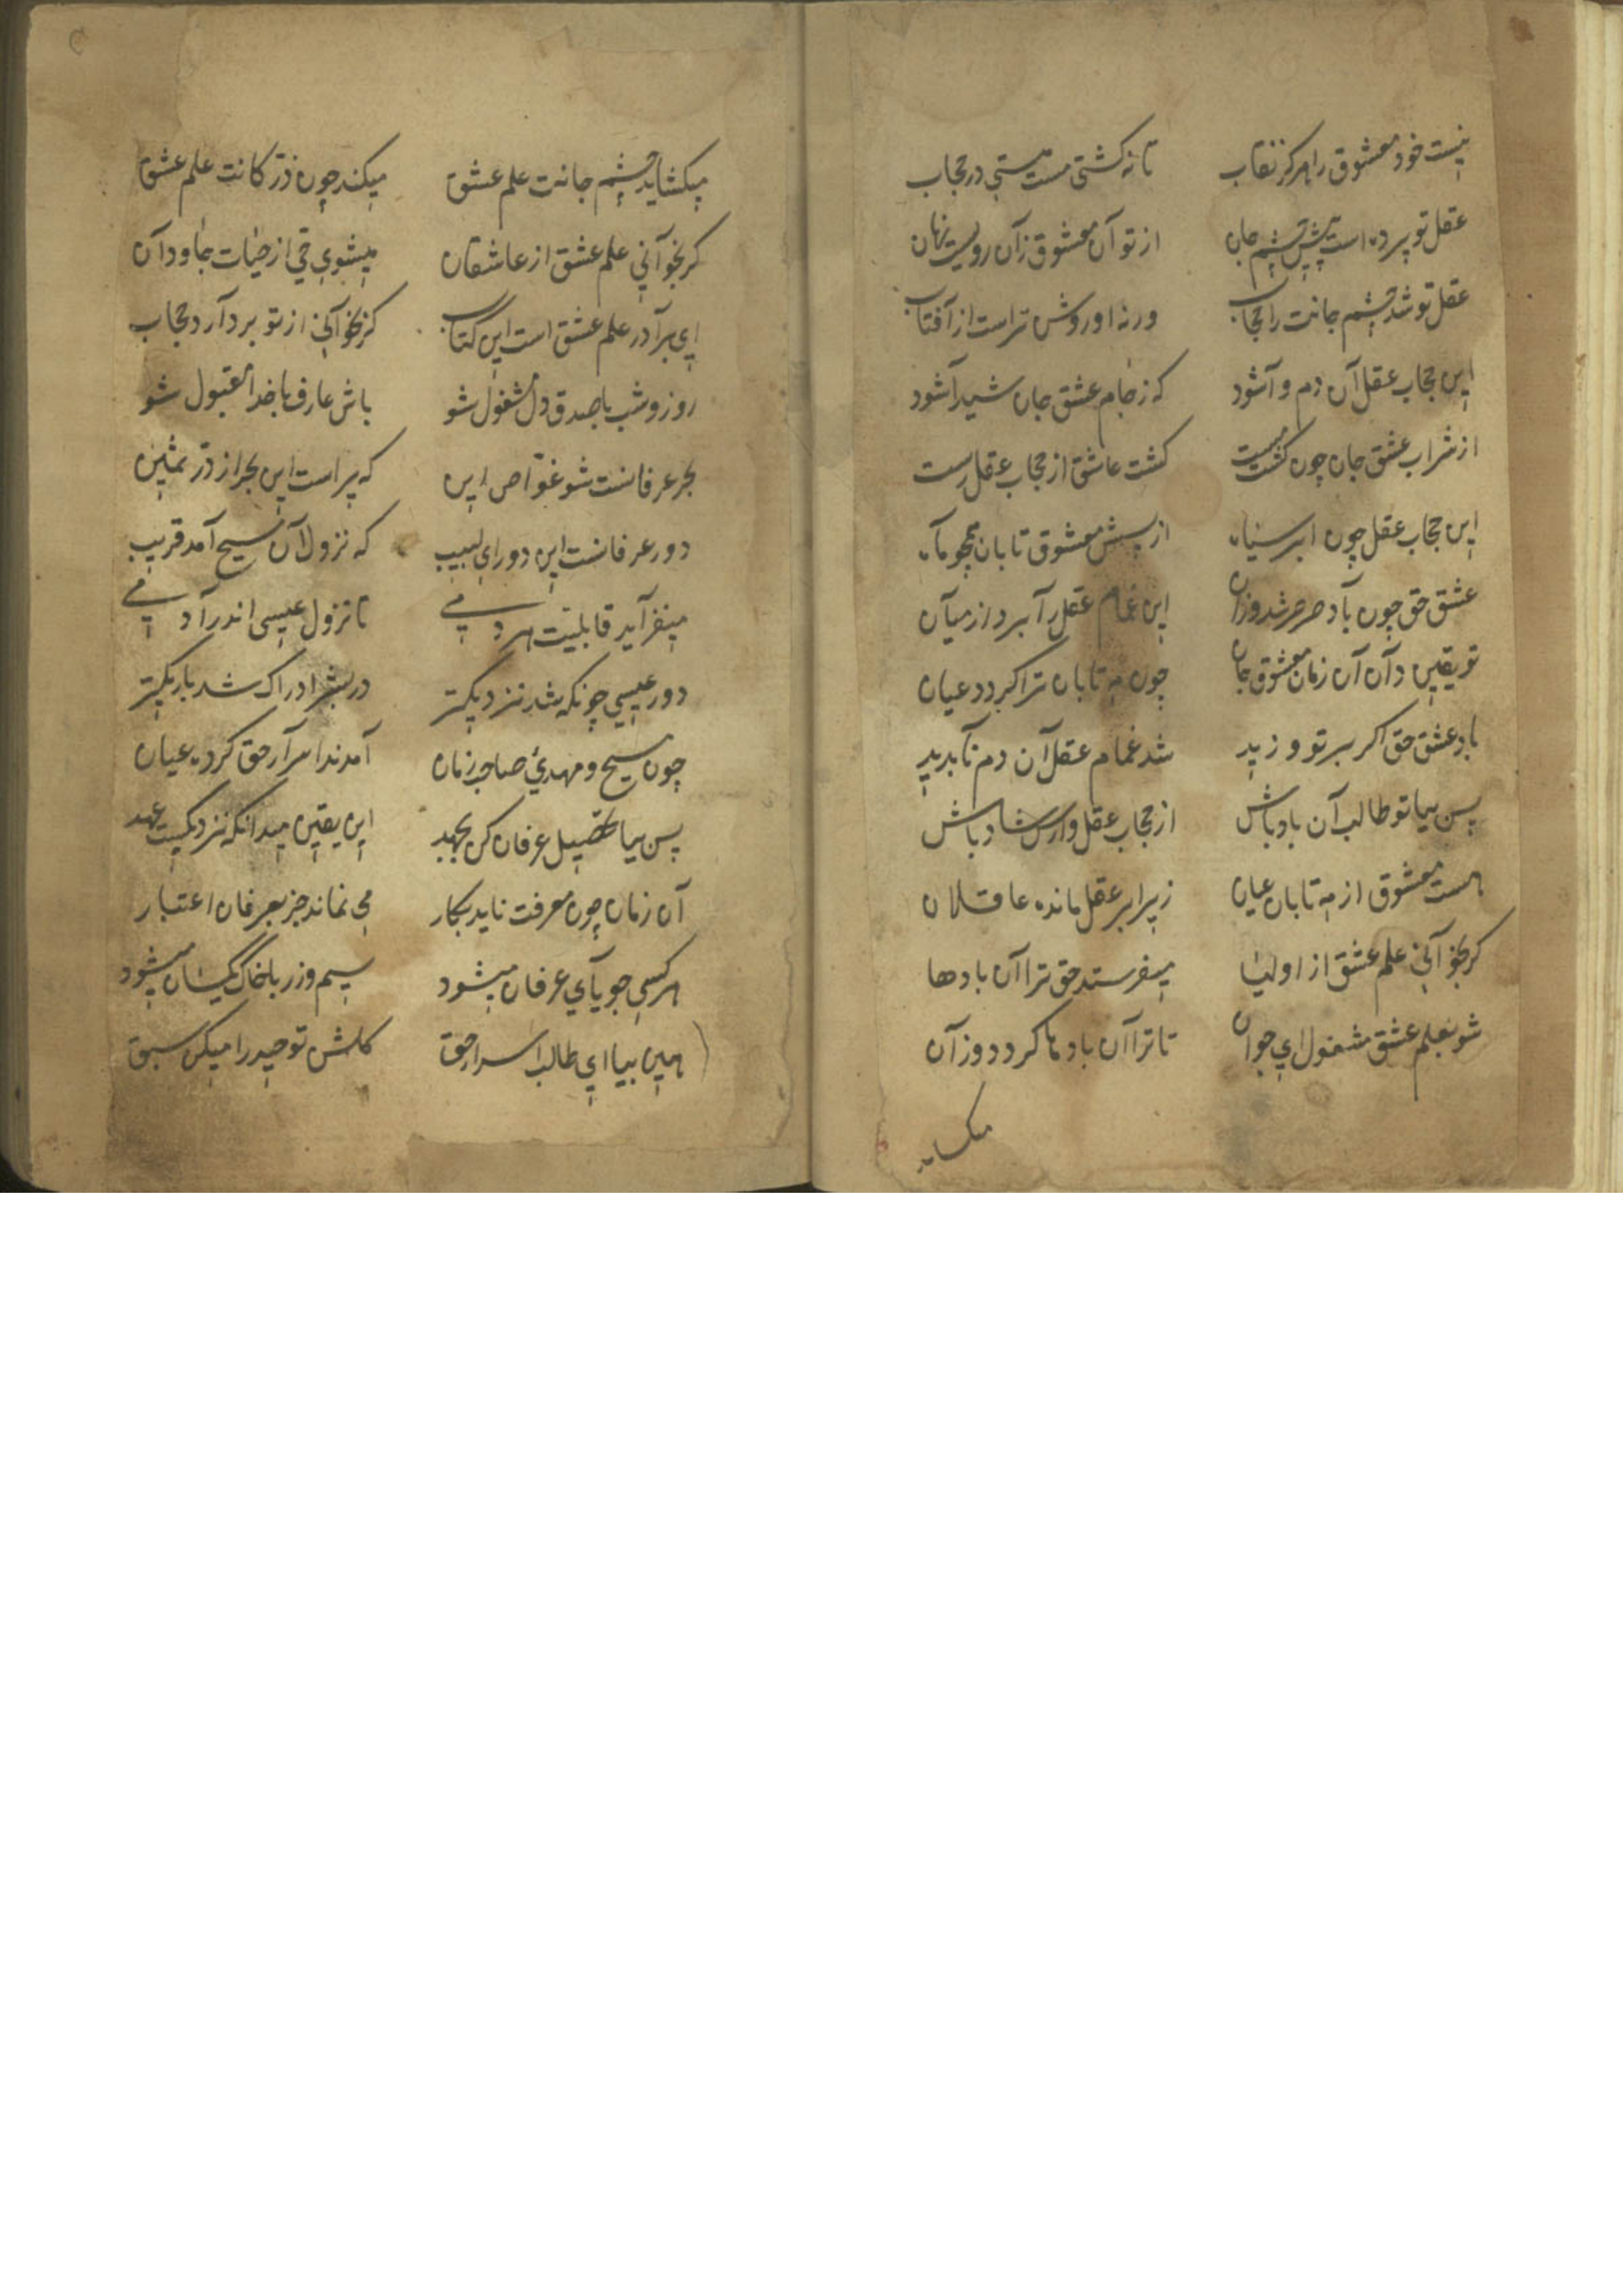 نیست خود معشوق را هرکز نقاب تا نه کشتی مست هستی در حجاب
عقل تو پرده است پیش چشم جان از تو آن معشوق زآن رویست نهان
عقل تو شد چشم جانت را حجاب ورنه او روشن تر است از آفتاب
این حجاب عقل آن دم وآشود که ز جام عشق جان شیدآشود
از شراب عشق جان چون کشت مست کشت عاشق از حجاب عقل رست
این حجاب عقل چون ابر سیاه از پسش معشوق تابان همچو مآه
عشق حق چون بآد صرصر شد وزان این غمام عقل رآ برد از میآن
تو یقین دآن آن زمان معشوق جان چون مه تابان ترا کردد عیان
باد عشق حق اکر بر تو وزید شد غمام عقل آن دم نآپدید
پس بیا تو طالب آن باد باش از حجاب عقل وارس شاد باش
هست معشوق از مه تابان عیان زیر ابر عقل مانده عاقلان
کر بخوآنی علم عشق از اولیا میفرستد حق ترا آن بادها
شو بعلم عشق مشغول ای جوان تا ترا آن بادها کردد وزآن
میکشاید
میکشاید چشم جانت علم عشق میکند چون ذر کانت علم عشق
کر بخوآنی علم عشق از عاشقان میشوی حی از حیات جاودآن
ای برآدر علم عشق است این کتاب کر بخوآنی از تو بردآرد حجاب
روز و شب با صدق دل مشغول شو باش عارف با خدا مقبول شو
بحر عرفانست شو غوّاص این که پر است این بحر از درّ ثمین
دور عرفانست این دور ای لبیب که نزول آن مسیح آمد قریب
میفزآید قابلیت هر دمی تا نزول عیسی اندر آدمی
دور عیسی چونکه شد نزدیکتر در بشر ادراک شد باریکتر
چون مسیح و مهدئ صاحب زمان آمدند اسرآر حق کرده عیان
پس بیا تحصیل عرفان کن بجهد این یقین میدانکه نزدیکست عهد
آن زمان چون معرفت ناید بکار می نماند جز بعرفان اعتبار
هر کسی جویآی عرفان میشود سیم و زر با خاک یکسان میشود
هین بیا ای طالب اسرار حق کلشن توحید را میکن سبق